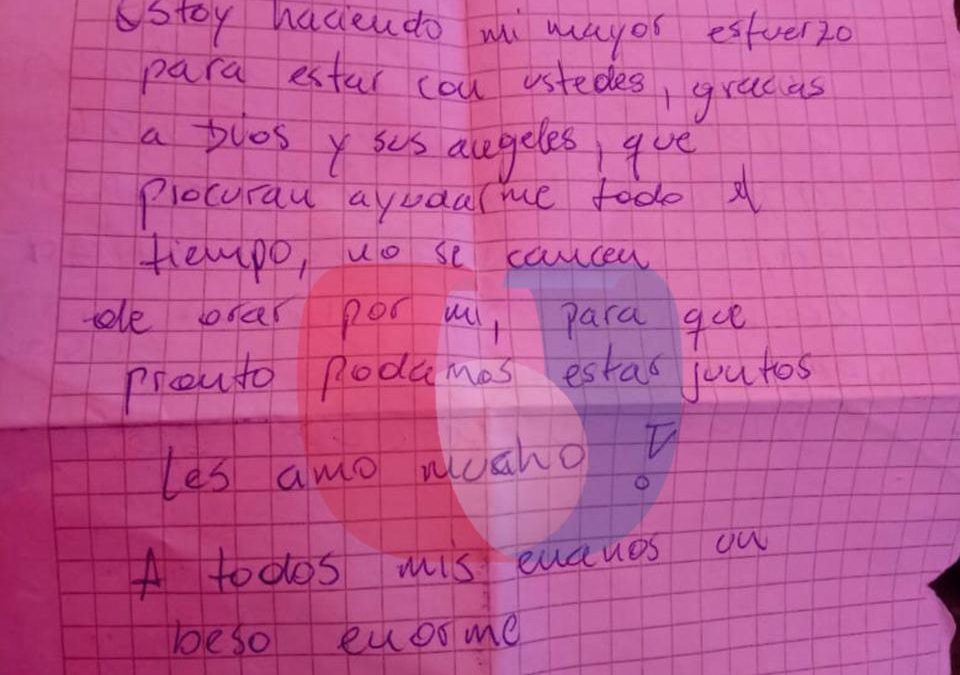 Estoy haciendo mi mayor esfuerzo
para estar con ustedes, gracias
a Dios y sus angeles, que
procuran ayudarme todo el
tiempo, no se cancen
de orar por mi, para que
pronto podamos estar juntos
Les amo mucho !
A todos mis enanos un
beso enorme